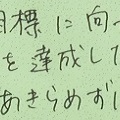 目標に向
を達成した
あきらめずに